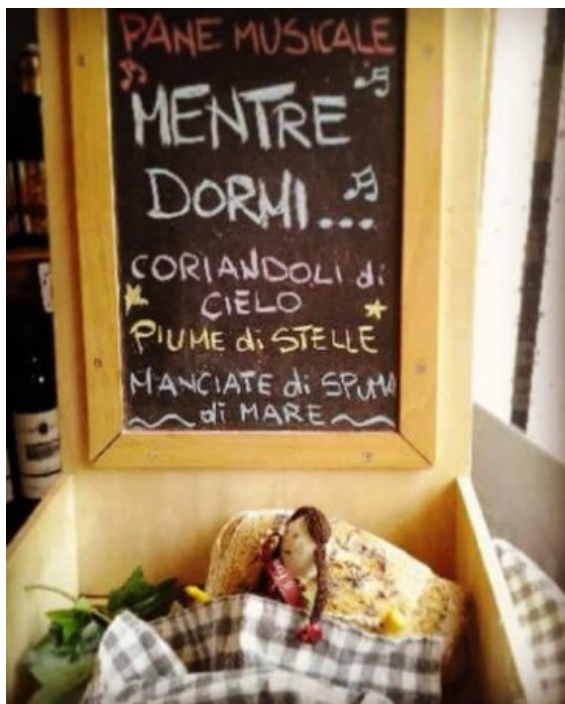 PANE MUSICALE
MENTRE
DORMI...
CORIANDOLI di
CIELO
PIUME di STELLE
MANCIATE di SPUMA
di MARE